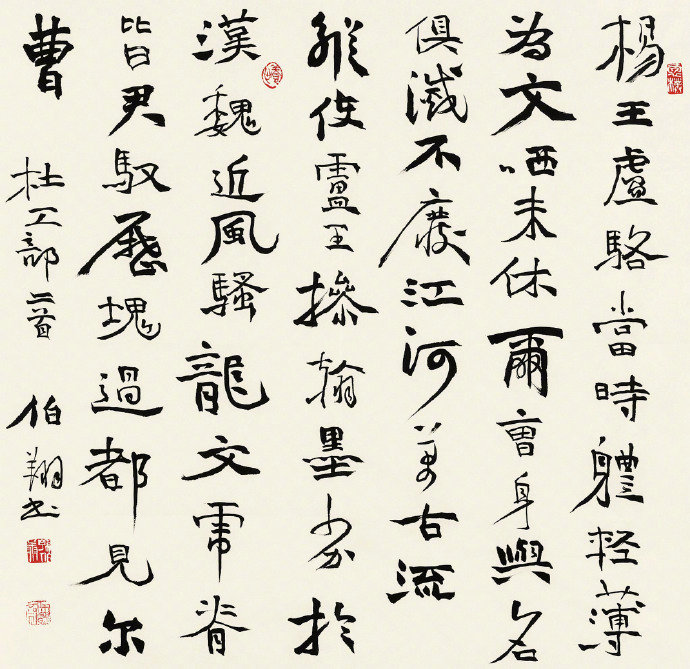 楊王盧駱當時軆輕薄
為文哂未休爾曹身與名
俱滅不廢江河萬古流
縱使盧王操翰墨劣於
漢魏近風騷龍文虎脊
皆君馭歷塊過都見尔
曹
杜工部二首 伯翔书